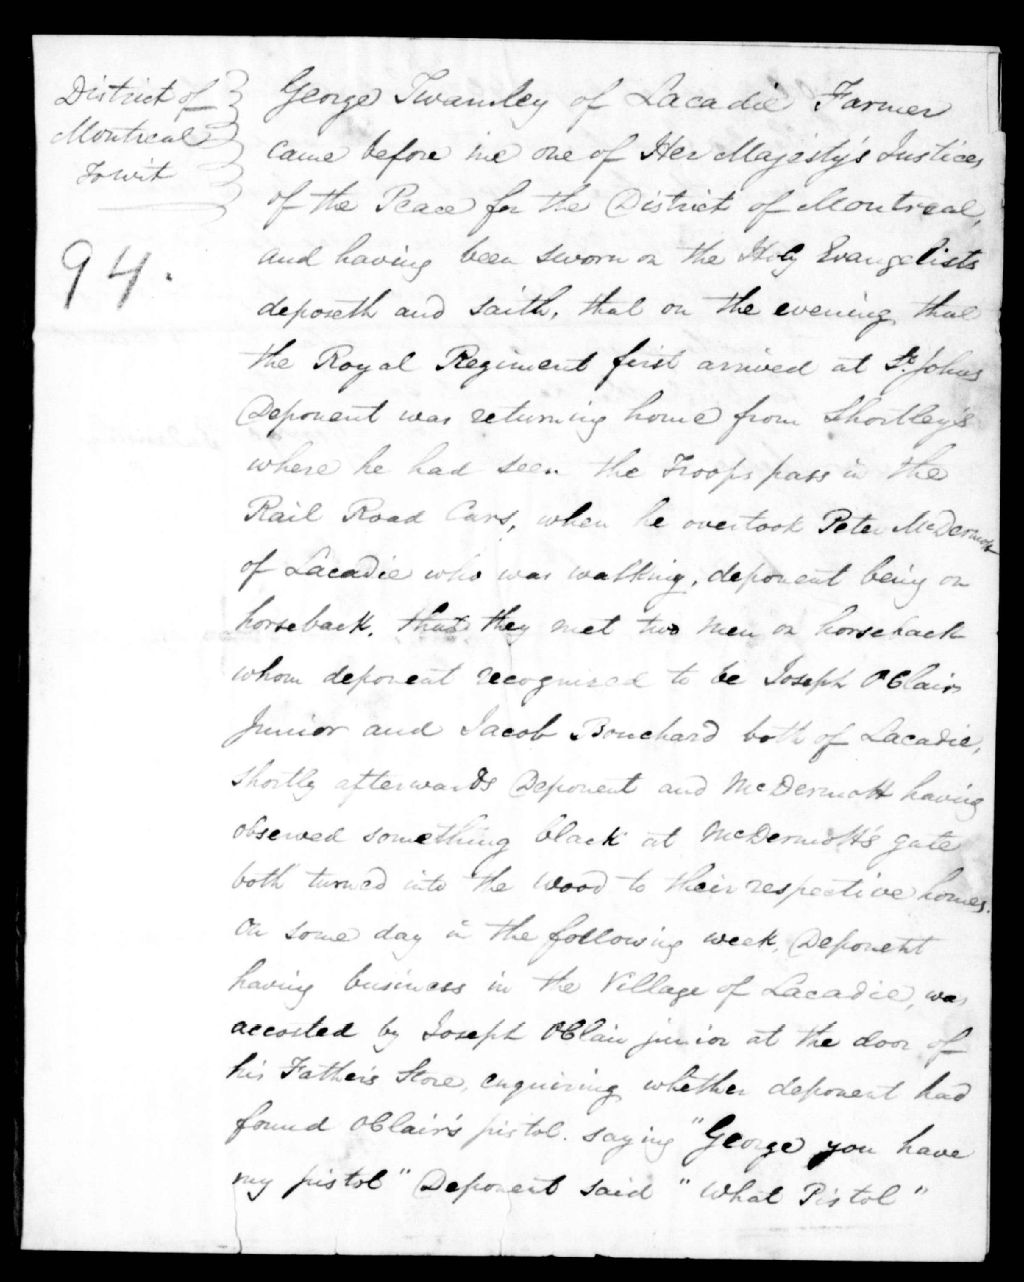 District of
Montreal
To wit
94.
George Twansley of Lacadie Farmer
came before me one of Her Majesty's Justices
of the Peace for the District of Montreal,
and having been sworn on the Holy Evangelists
deposeth and saith, that on the evening that
the Royal Regiment first arrived at St. Johns
Deponent was returning home from Shortley's
where he had seen the Troops pass in the
Rail Road Cars, when he overtook Peter McDermott
of Lacadie who was walking, deponent being on
horseback, that they met two men on horseback
whom deponent recognized to be Joseph OClair
Junior and Jacob Bouchard both of Lacadie,
shortly afterwards Deponent and McDermott having
observed something black at McDermott's gate
both turned into the wood to their respective homes.
On some day in the following week, Deponent
having business in the Village of Lacadie, was
accosted by Joseph OClair junior at the door of
his Father's Store, enquiring whether deponent had
found OClair's pistol. saying "George you have
my pistol" Deponent said "What Pistol"